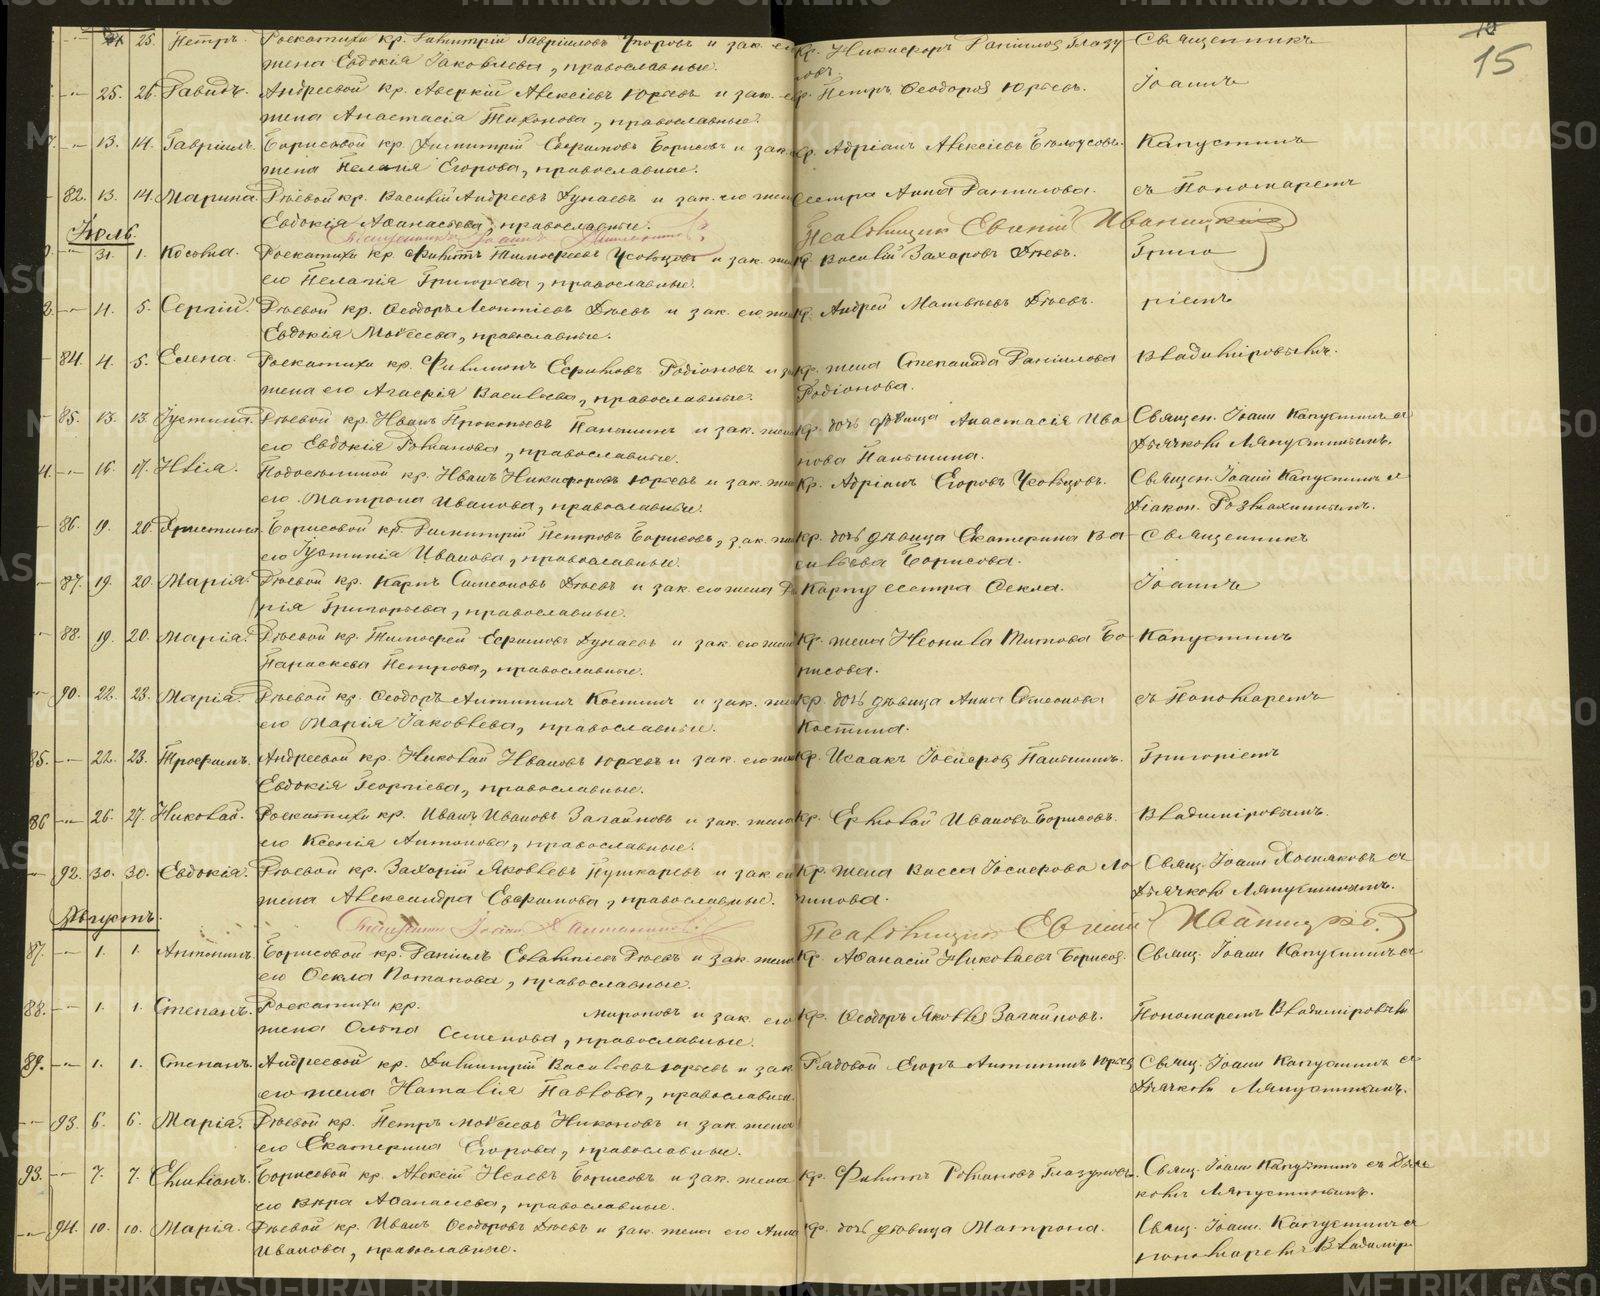 15
25. Петръ. Роскатихи кр. Димитрій Гавріиловъ и зак. его
жена Евдокія Іаковлева, православные.
кр. Никифоръ Даніиловъ Глазу
новъ.
Священникъ
25. 26. Давидъ. Андреевой кр. Аверкій Алексіевъ Юрьевъ и зак. его
жена Анастасія Тихонова, православные.
кр. Петръ Ѳеодоровъ Юрьевъ.
Іоаннъ
13. 14. Гавріилъ. Борисовой кр. Димитрій Евфимовъ Борисовъ и зак.
жена Пелагія Егорова, православные.
кр. Адріанъ Алексіевъ Бѣлоусовъ.
Капустинъ
82. 13. 14. Марина. Дѣевой кр. Василій Андреевъ Дунаевъ и зак. его жена
Евдокія Аѳанасьева, православные.
сестра Анна Данилова.
съ Пономаремъ
Іюль.
Псаломщикъ Евгеній Иваницкій
31. 1. Косьма. Роскатихи кр. Филиппъ Тимоѳеевъ Усольцовъ и зак. жена
его Пелагія Григорьева, православные.
кр. Василій Захаровъ Дѣевъ.
Григо
4. 5. Сергій. Дѣевой кр. Ѳеодоръ Леонтіевъ Дѣевъ и зак. его жена
Евдокія Моисеева, православные.
кр. Андрей Матвѣевъ Дѣевъ.
ріемъ
84. 4. 5. Елена. Роскатихи кр. Филимонъ Евфимовъ Родіоновъ и зак.
жена его Агафія Васильева, православные.
кр. жена Степанида Даніилова
Родіонова.
Владиміровымъ.
85. 13. 13. Іустина. Дѣевой кр. Иванъ Прокопьевъ Паньшинъ и зак. жена
его Евдокія Романова, православные.
кр. дочь дѣвица Анастасія Ива
нова Паньшина.
Священ. Іоаннъ Капустинъ съ
Дьячкомъ Ляпустинымъ.
16. 17. Илія. Подосеньиной кр. Иванъ Никифоровъ Юрьевъ и зак. жена
его Матрона Иванова, православные.
кр. Адріанъ Егоровъ Усольцовъ.
Священ. Іоаннъ Капустинъ и
Діакон. Розмахнинымъ.
86. 19. 20. Христина. Борисовой кр. Димитрій Петровъ Борисовъ, зак. жена
его Іустинія Иванова, православные.
кр. дочь дѣвица Екатерина Ва
сильева Борисова.
Священникъ
87. 19. 20. Марія. Дѣевой кр. Карпъ Симеоновъ Дѣевъ и зак. его жена Да
рія Григорьева, православные.
Карпу сестра Ѳекла.
Іоаннъ
88. 19. 20. Марія. Дѣевой кр. Тимоѳей Евфимовъ Дунаевъ и зак. его жена
Параскева Петрова, православные.
кр. жена Неонила Титова Бо
рисова.
Капустинъ
90. 22. 23. Марія. Дѣевой кр. Ѳеодоръ Антипинъ Костинъ и зак. жена
его Марія Іаковлева, православные.
кр. дочь дѣвица Анна Симеонова
Костина.
съ Пономаремъ
85. 22. 23. Трофимъ. Андреевой кр. Николай Ивановъ Юрьевъ и зак. его жена
Евдокія Георгіева, православные.
кр. Исаакъ Іосифовъ Паньшинъ.
Григоріемъ
86 26. 27. Николай. Роскатихи кр. Иванъ Ивановъ Загайновъ и зак. жена
его Ксенія Антонова, православные.
кр. Ермолай Ивановъ Борисовъ.
Владиміровымъ.
92. 30. 30. Евдокія. Дѣевой кр. Захарій Яковлевъ Пушкаревъ и зак. его
жена Александра Евфимова, православные.
кр. жена Васса Іосифова Ло
гинова.
Свящ. Іоаннъ Хомяковъ съ
Дьячкомъ Ляпустинымъ.
Августъ.
Псаломщикъ Евгеній Иваницкій
87. 1. 1. Антонинъ. Борисовой кр. Даніилъ Евлампіевъ Дѣевъ и зак. жена
его Ѳекла Потапова, православные.
кр. Аѳанасій Николаевъ Борисов.
Свящ. Іоаннъ Капустинъ съ
88. 1. 1. Степанъ. Роскатихи кр. Мироновъ и зак. его
жена Ольга Семенова, православные.
кр. Ѳеодоръ Яковлевъ Загайновъ.
Пономаремъ Владиміровымъ
89. 1. 1. Степанъ. Андреевой кр. Димитрій Васильевъ Юрьевъ и зак
его жена Наталія Павлова, православные.
Рядовой Егоръ Антипинъ Юрьев
Свящ. Іоаннъ Капустинъ съ
Дьячкомъ Ляпустинымъ.
93. 6. 6. Марія. Дѣевой кр. Петръ Моисеевъ Никоновъ и зак. жена
его Екатерина Егорова, православные.
93. 7. 7. Емиліанъ. Борисовой кр. Алексій Исаевъ Борисовъ и зак. жена
его Вѣра Аѳанасіева, православные.
кр. Филиппъ Романовъ Глазуновъ.
Свящ. Іоаннъ Капустинъ съ Дьяч
комъ Ляпустинымъ.
94. 10. 10. Марія. Дѣевой кр. Иванъ Ѳеодоровъ Дѣевъ и зак. жена его Анна
Иванова, православные.
кр. дочь дѣвица Матрона.
Свящ. Іоаннъ Капустинъ съ
пономаремъ Владимір
METRIKI.GASO-URAL.RU